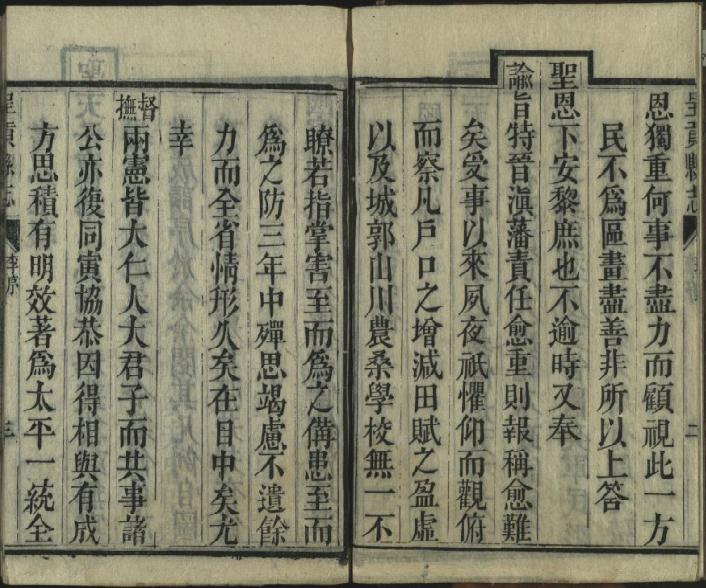 恩獨重何事不盡力而顧視此一方
民不爲區畫盡善非所以上答
聖恩下安黎庶也不逾時又奉
諭旨特晉滇藩責任愈重則報稱愈難
矣受事以來夙夜祇懼仰而觀俯
而察凡戶口之增減田賦之盈虛
以及城郭山川農桑學校無一不
瞭若指掌害至而爲之備患至而
爲之防三年中殫思竭慮不遺餘
力而全省情形久矣在目中矣尤
幸
督撫兩憲皆大仁人大君子而共事諸
公亦復同寅協恭因得相與有成
方思積有明效著爲太平一統全
呈貢縣志
序
二
呈貢縣志
序
三